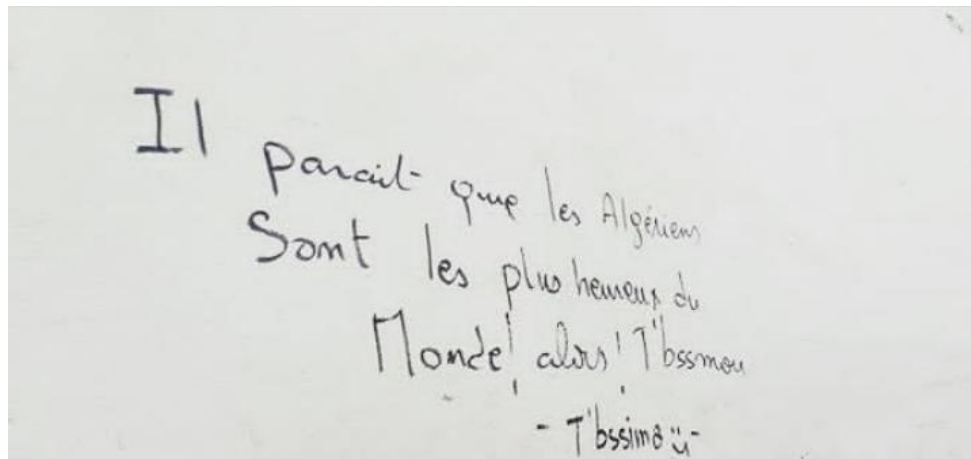 Il parait que les Algériens
Sont les plus heureux du
Monde! alors! T'bssmou
- T'bssimo ü -